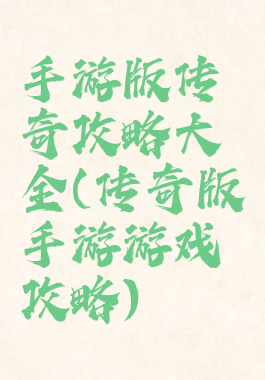 手游版传
奇攻略大
全(传奇版
手游游戏
攻略)